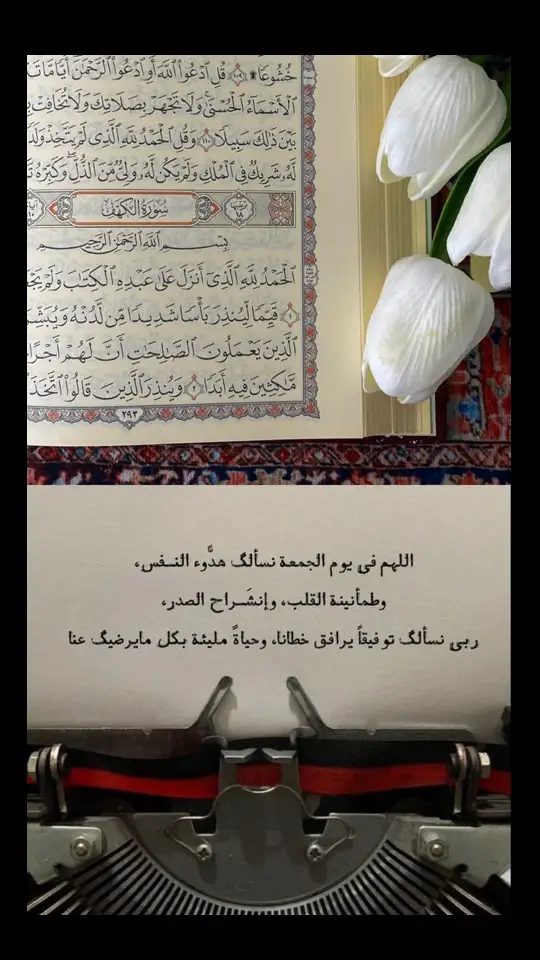 خُشُوعًا ۩ ۝١٠٩ قُلِ ادْعُوا اللَّهَ أَوِ ادْعُوا الرَّحْمَٰنَ أَيًّا مَّا تَ
الْأَسْمَاءُ الْحُسْنَىٰ وَلَا تَجْهَرْ بِصَلَاتِكَ وَلَا تُخَافِتْ بِ
بَيْنَ ذَٰلِكَ سَبِيلًا ۝١١٠ وَقُلِ الْحَمْدُ لِلَّهِ الَّذِي لَمْ يَتَّخِذْ وَلَدً
لَّهُ شَرِيكٌ فِي الْمُلْكِ وَلَمْ يَكُن لَّهُ وَلِيٌّ مِّنَ الذُّلِّ وَكَبِّرْهُ تَ
سُورَةُ الْكَهْفِ
بِسْمِ اللَّهِ الرَّحْمَٰنِ الرَّحِيمِ
الْحَمْدُ لِلَّهِ الَّذِي أَنزَلَ عَلَىٰ عَبْدِهِ الْكِتَابَ وَلَمْ يَجْ
۝١ قَيِّمًا لِّيُنذِرَ بَأْسًا شَدِيدًا مِّن لَّدُنْهُ وَيُبَشِّ
الَّذِينَ يَعْمَلُونَ الصَّالِحَاتِ أَنَّ لَهُمْ أَجْرًا
مَّاكِثِينَ فِيهِ أَبَدًا ۝٣ وَيُنذِرَ الَّذِينَ قَالُوا اتَّخَذَ
٢٩٣
اللهم في يوم الجمعة نسألك هدُّوء النـفس،
وطمأنينة القلب، وإنشَـراح الصدر،
ربي نسألك توفيقاً يرافق خطانا، وحياةً مليئة بكل مايرضيك عنا